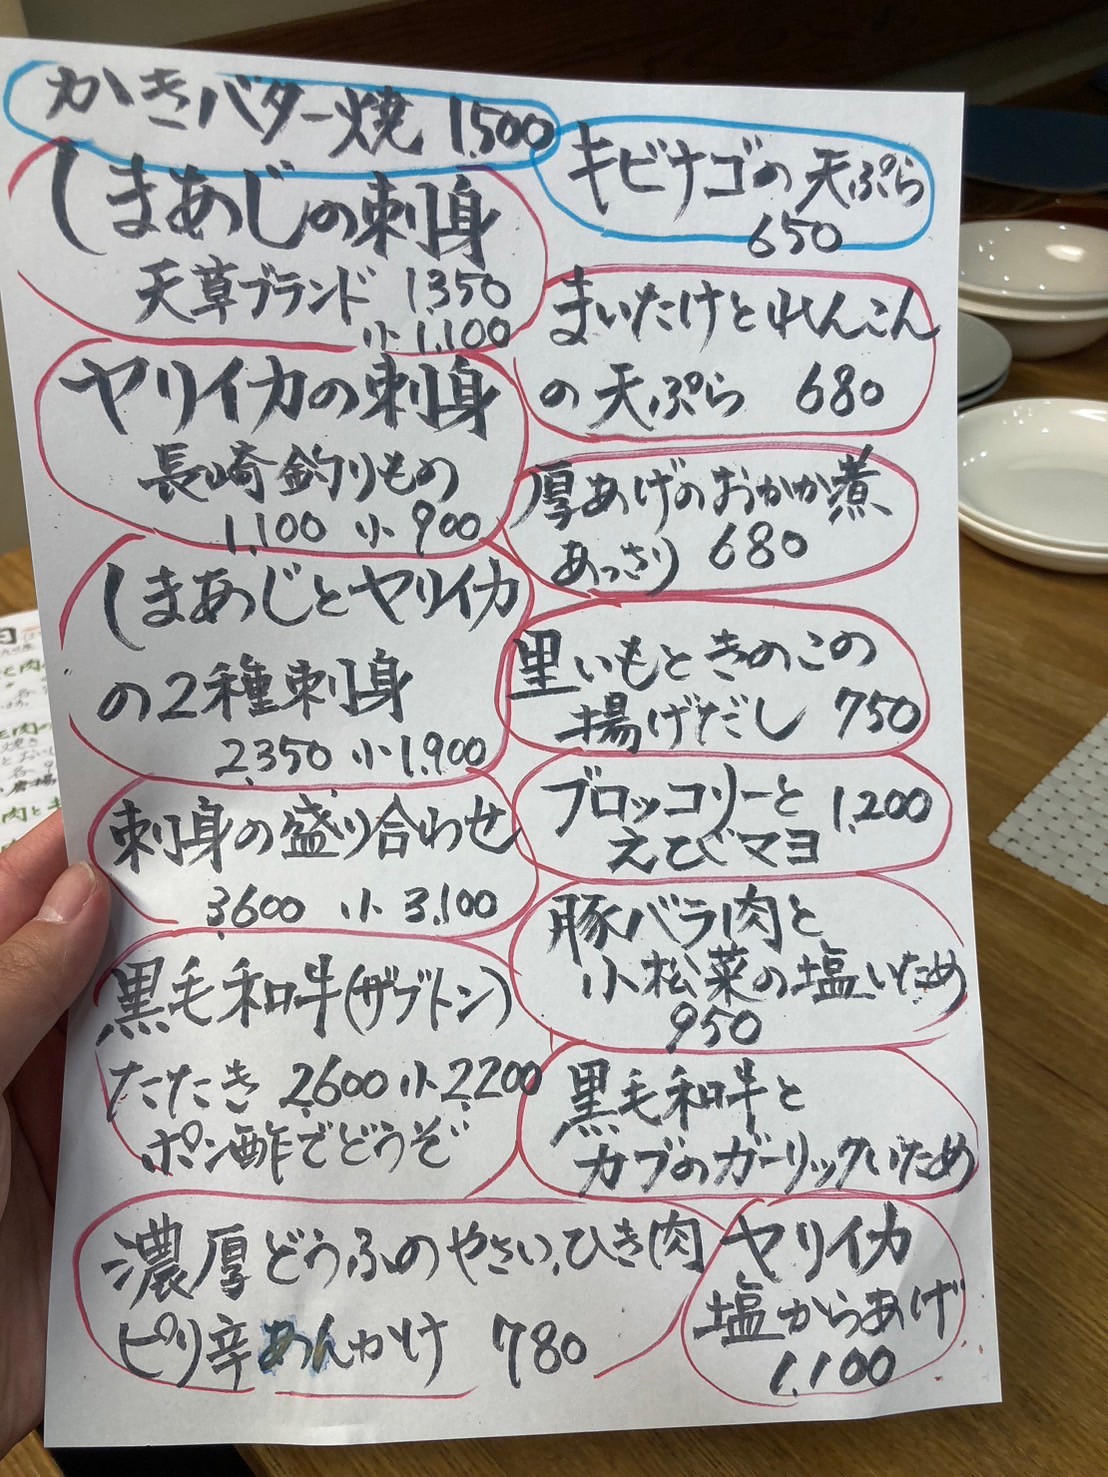 かきバター焼 1,500
しまあじの刺身
天草ブランド 1,350
小 1,100
ヤリイカの刺身
長崎釣りもの
1,100 小 900
しまあじとヤリイカ
の2種刺身
2,350 小 1,900
刺身の盛り合わせ
3,600 小 3,100
黒毛和牛(ザブトン)
たたき 2,600 小 2,200
ポン酢でどうぞ
濃厚どうふのやさい、ひき肉
ピリ辛あんかけ 780
キビナゴの天ぷら
650
まいたけとれんこん
の天ぷら 680
厚あげのおかか煮
あっさり 680
里いもときのこの
揚げだし 750
ブロッコリーと 1,200
えびマヨ
豚バラ肉と
小松菜の塩いため
950
黒毛和牛と
カブのガーリックいため
ヤリイカ
塩からあげ
1,100